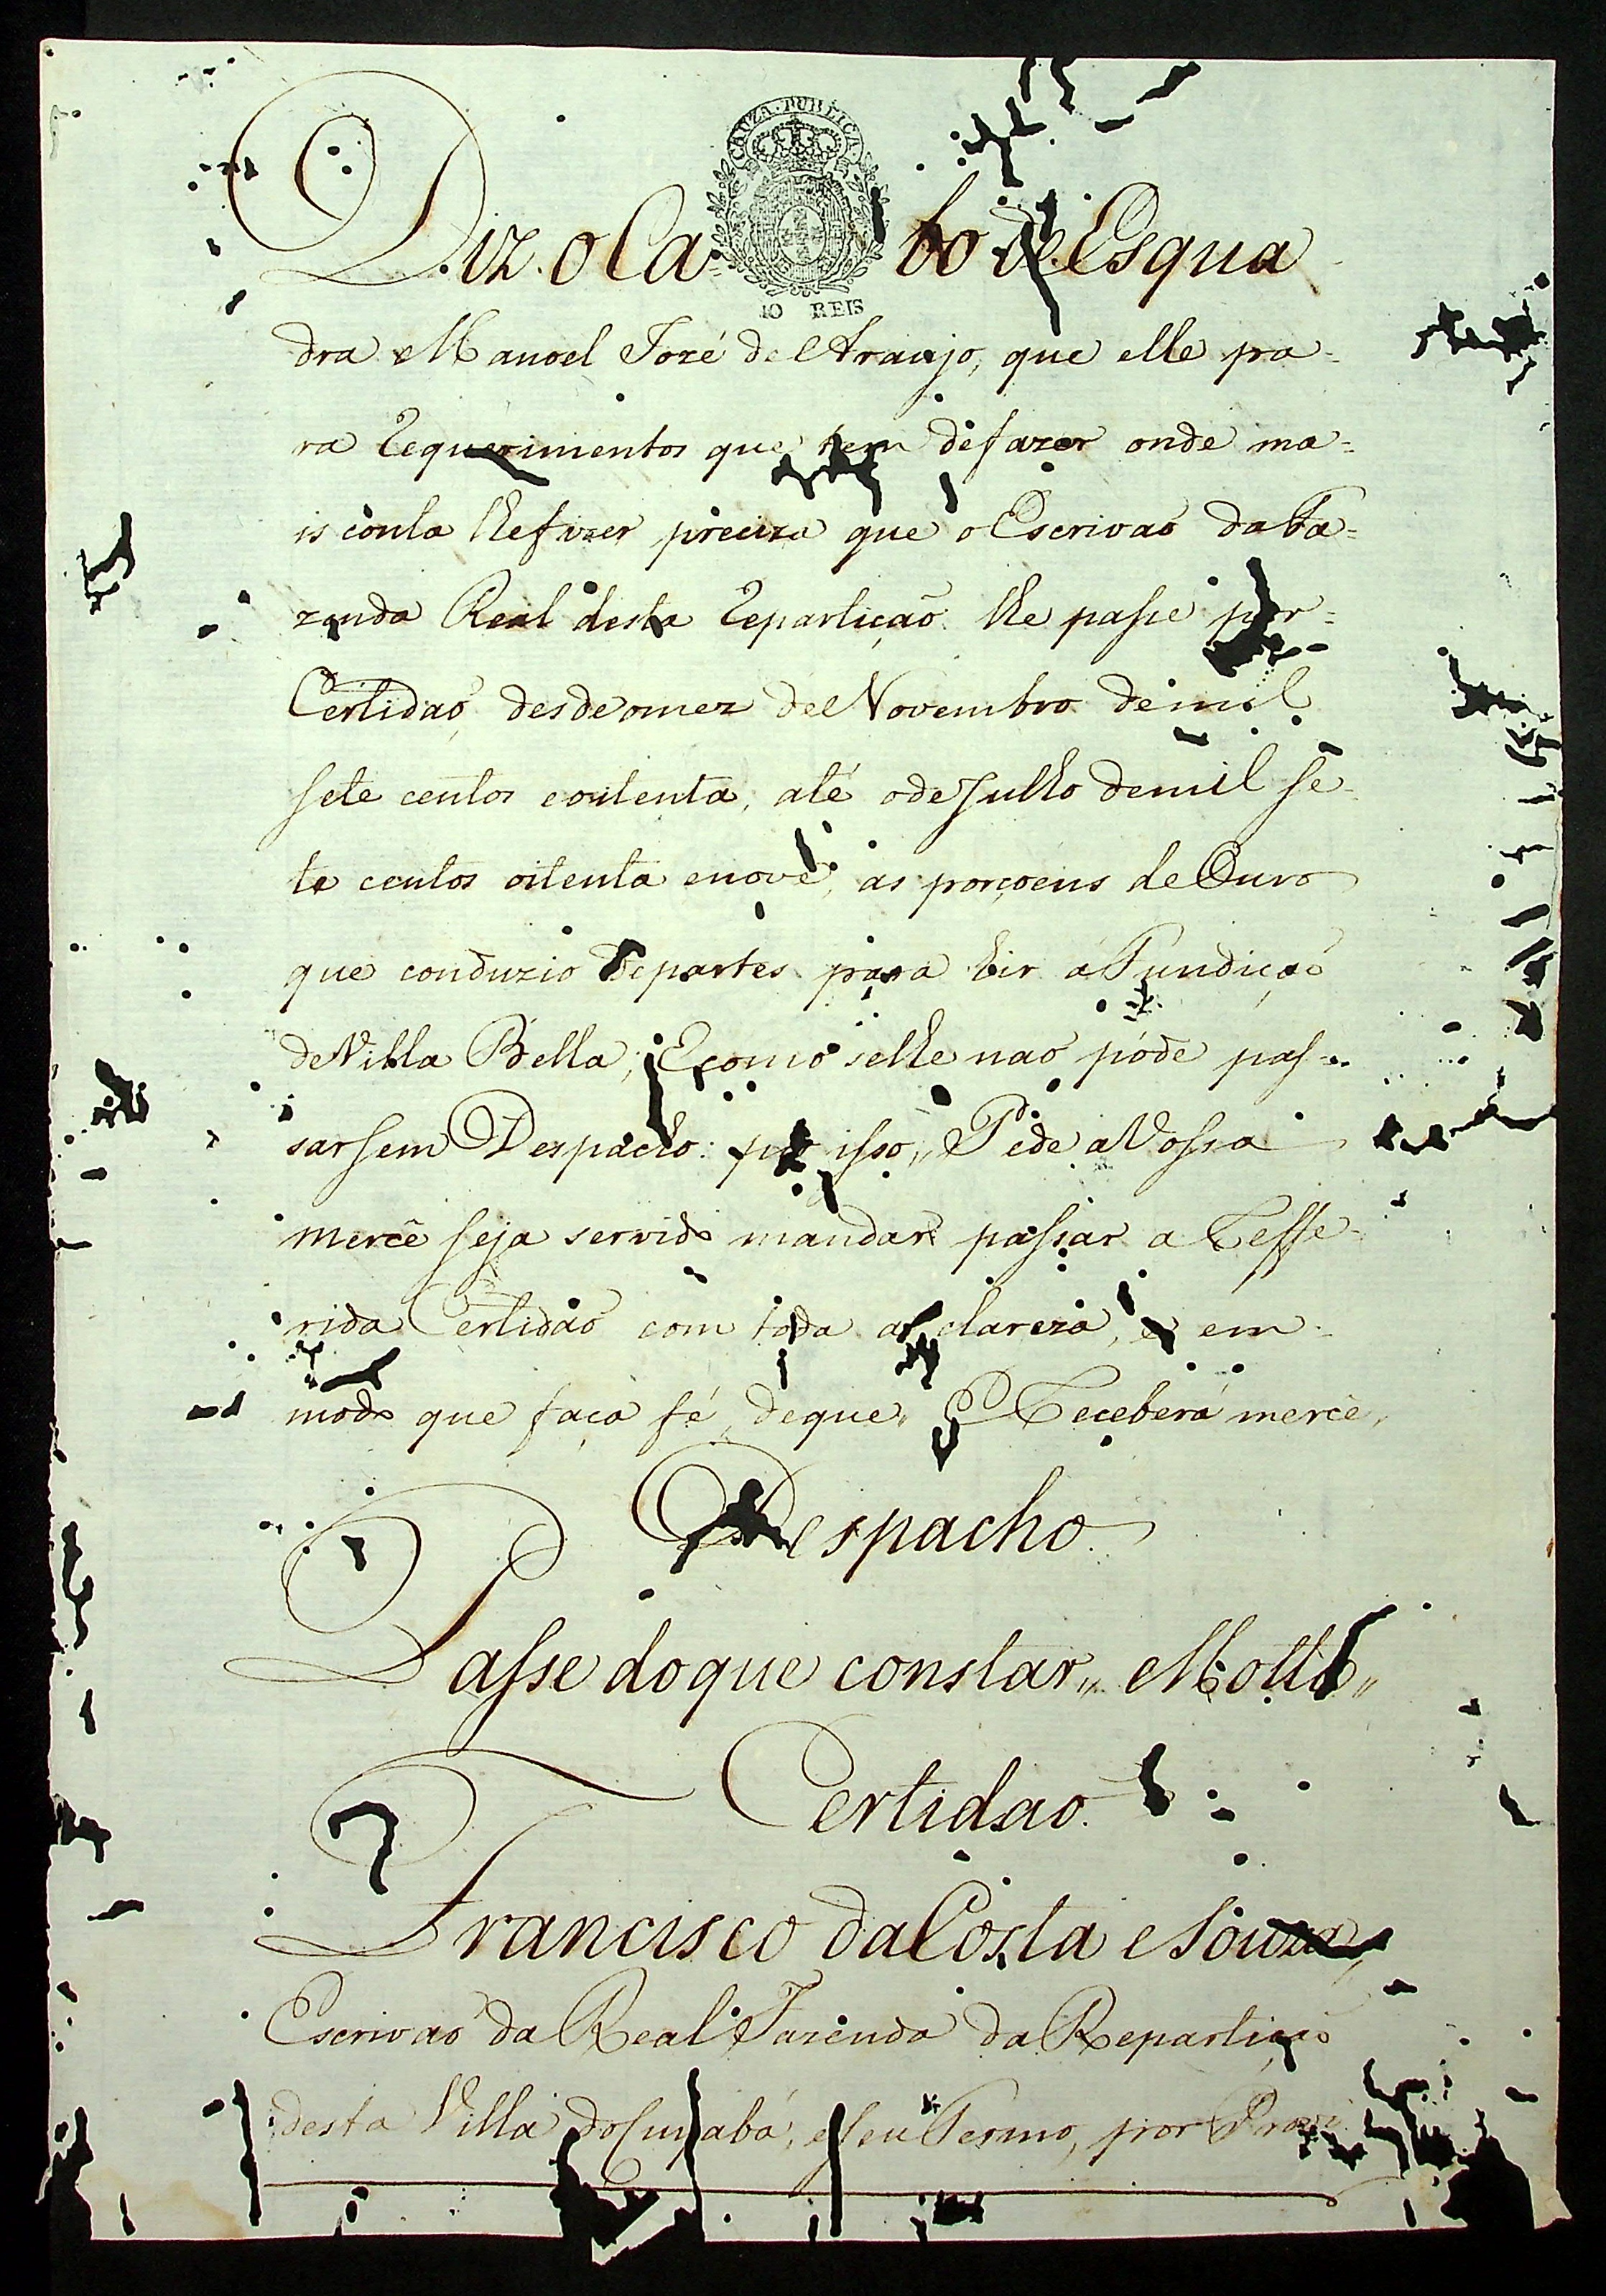 CAUZA. PUBLICA.
Diz. o Ca= bo de Esqua
10 REIS
dra Manoel Jozé de Araujo, que elle pa=
ra Requerimentos que tem de fazer onde ma=
is conta lhe fizer, preciza que o Escrivaõ da Fa=
zenda Real desta Repartiçaõ lhe passe por=
Certidaõ, desde o mez de Novembro de mil
sete centos e oitenta, até o de Julho de mil se=
te centos oitenta e nove, as porçoens de Ouro
que conduzio de partes para hir á Fundiçaõ
de Villa Bella; E como se lhe naõ póde pas=
sar sem Despacho: por isso,, Pede a Vossa
mercê seja servido mandar passar a Reffe=
rida Certidaõ com toda a clareza, e em=
modo que faça fé, de que,, E Receberá mercê,,
Despacho
Passe do que constar,, Motta,,
Certidao.
Francisco da Costa e Souza,
Escrivaõ da Real Fazenda da Repartiçaõ
desta Villa do Cuyabá, e seu Termo, por Provi